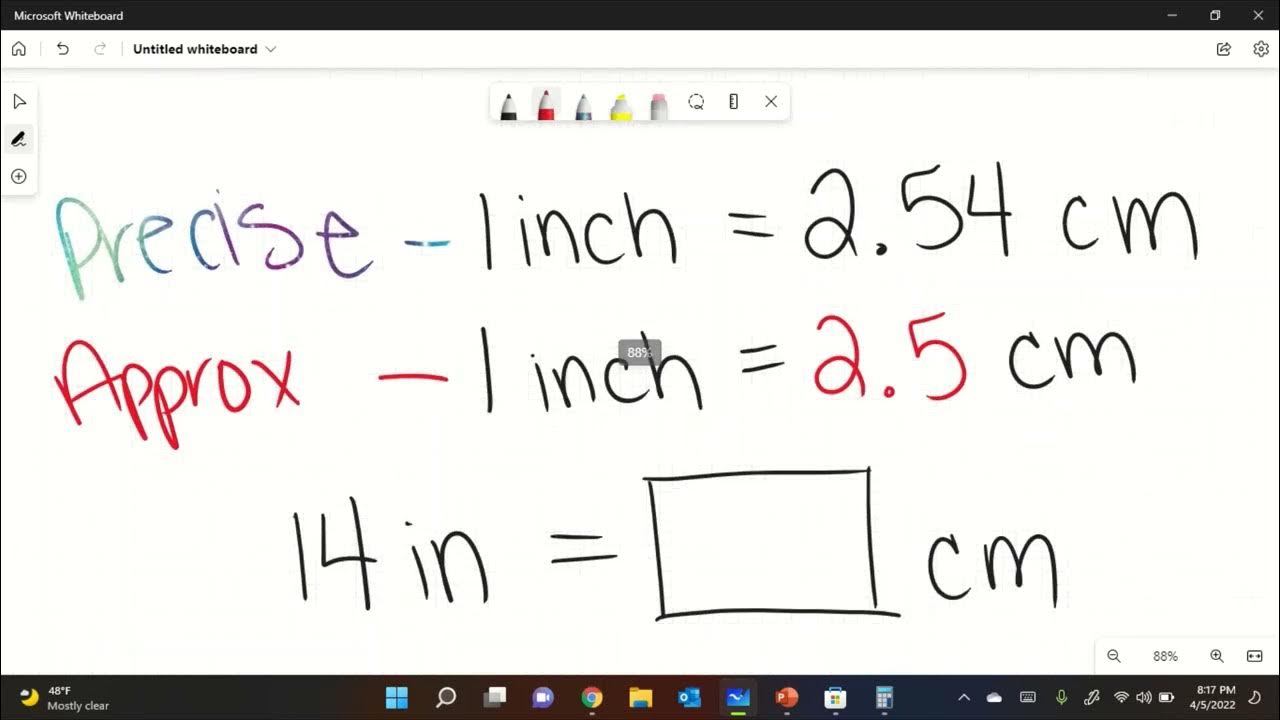 Microsoft Whiteboard
Untitled whiteboard
Precise - 1 inch = 2.54 cm
Approx - 1 inch = 2.5 cm
88%
14 in = cm
88%
48°F
Mostly clear
8:17 PM
4/5/2022